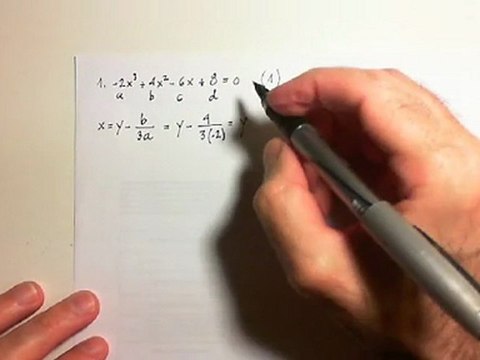 1. -2x³ + 4x² - 6x + 8 = 0 (1)
a b c d
x = y - b/3a = y - 4/3(-2) = y